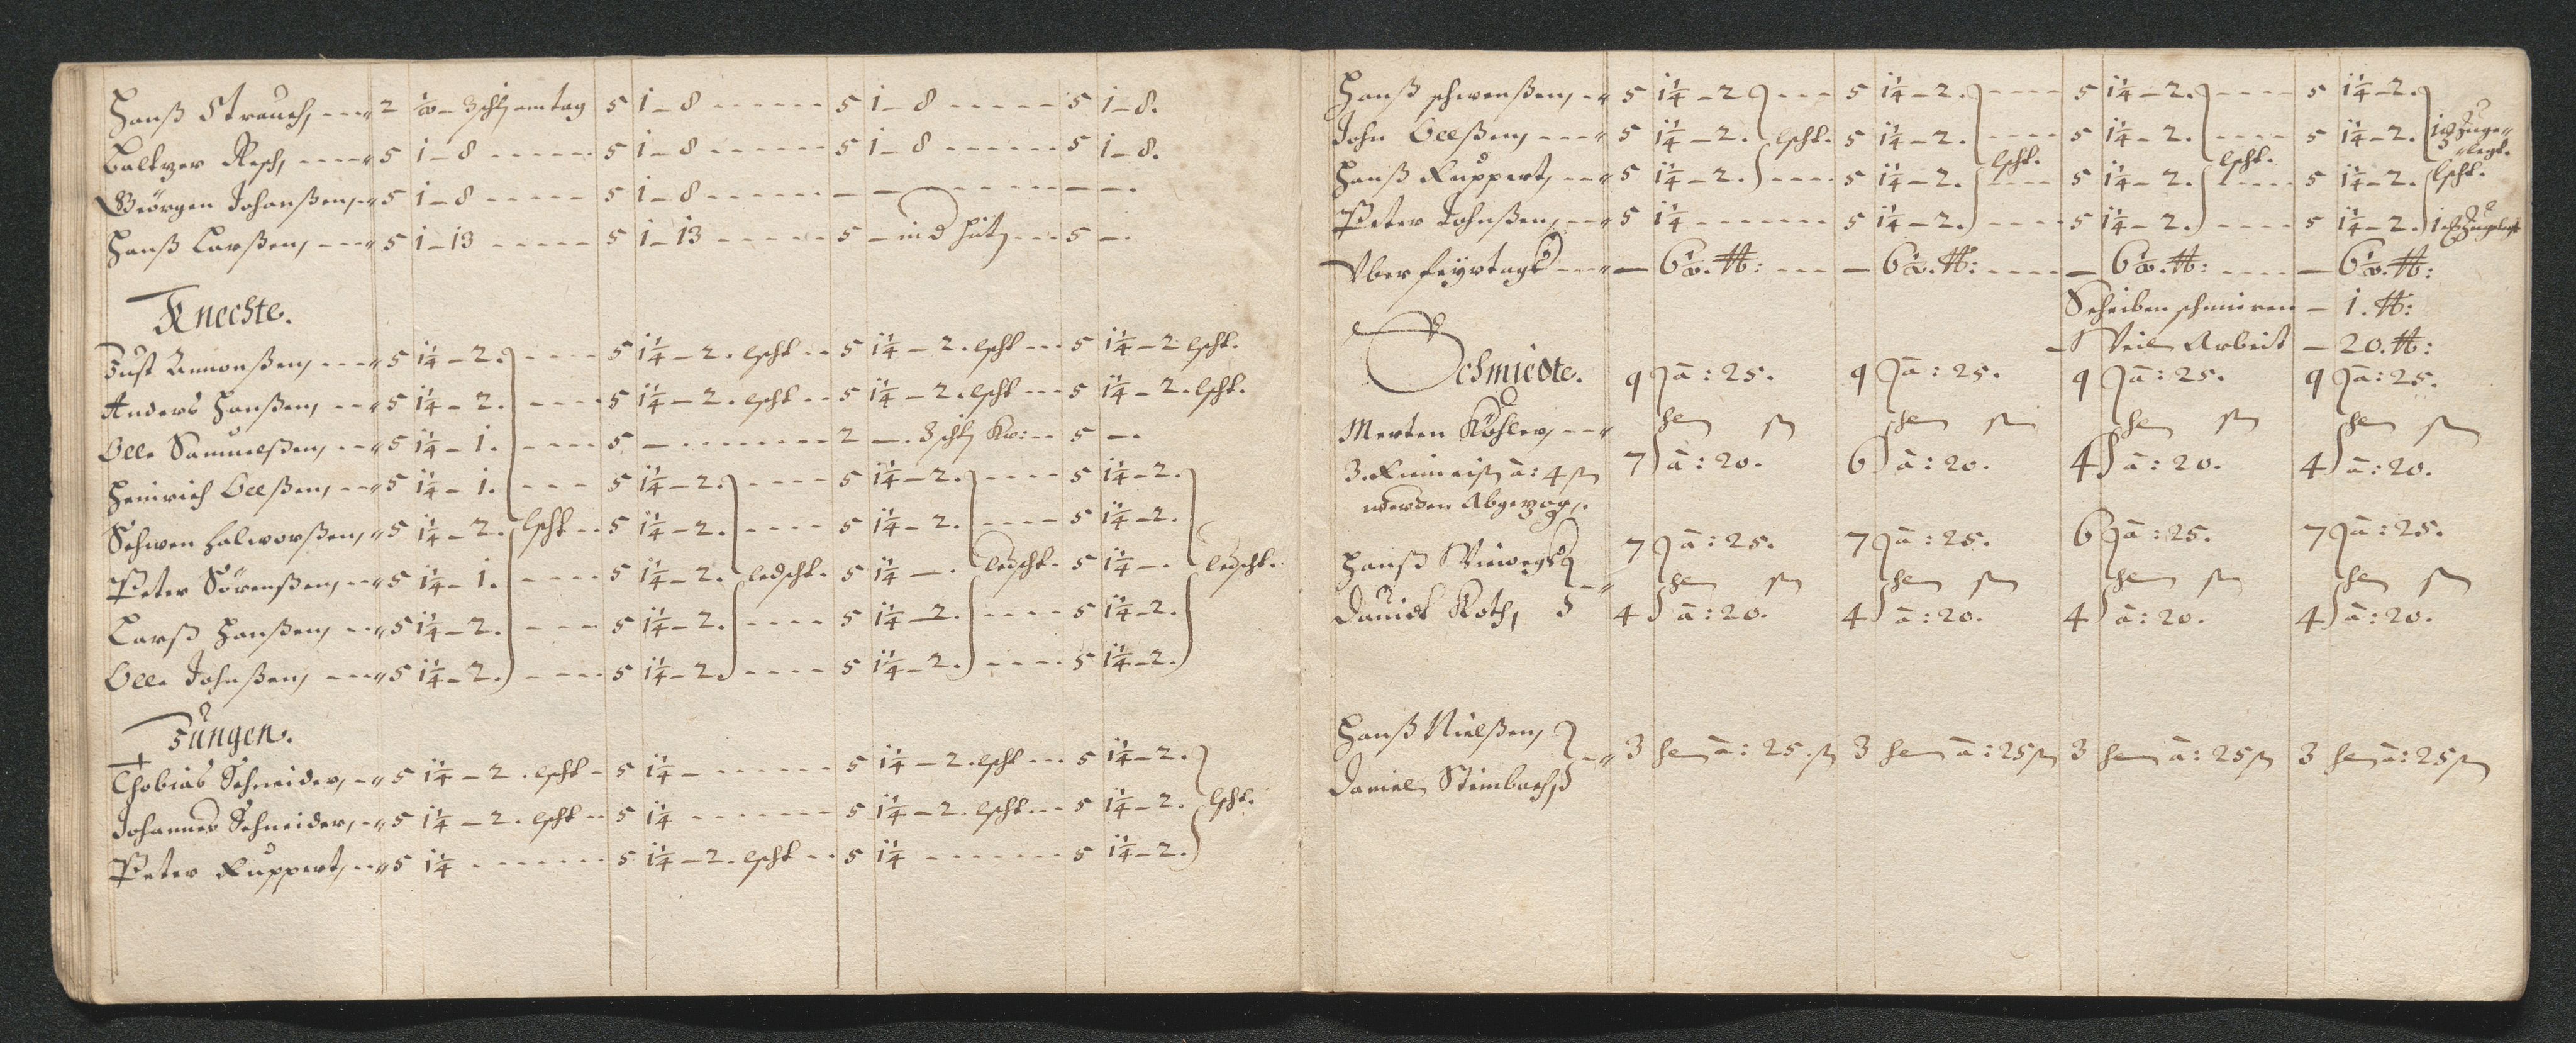 Hanß Strauch, 2 3 schh em tag 5 1 – 8 5 1 – 8 5 1 – 8.
Baltzer Resch, 5 1 – 8 5 1 – 8 5 1 – 8 5 1 – 8.
Geörgen Johanßen, 5 1 – 8 5 1 – 8 – – –.
Hanß Larßen, 5 1 – 13 5 1 – 13 5 – 5 –.
Knechte.
Just Amonßen, 5 1¼ – 2. 5 1¼ – 2. lscht 5 1¼ – 2. lscht 5 1¼ – 2 lscht.
Anders Hanßen, 5 1¼ – 2. 5 1¼ – 2. lscht 5 1¼ – 2. lscht 5 1¼ – 2. lscht.
Olle Samuelßen, 5 1¼ – 1. 5 – 2 –. 3 schh 5 –.
Heinrich Olleßen, 5 1¼ – 1. 5 1¼ – 2. 5 1¼ – 2. 5 1¼ – 2.
Schwen Halworßen, 5 1¼ – 2. lscht 5 1¼ – 2. 5 1¼ – 2. 5 1¼ – 2.
Peter Sörenßen, 5 1¼ – 1. 5 1¼ – 2. ledscht. 5 1¼ –. ledscht. 5 1¼ –. ledscht.
Larß Hanßen, 5 1¼ – 2. 5 1¼ – 2. 5 1¼ – 2. 5 1¼ – 2.
Olle Johnßen, 5 1¼ – 2. 5 1¼ – 2. 5 1¼ – 2. 5 1¼ – 2.
Jungen.
Thobias Schneider, 5 1¼ – 2. lscht 5 1¼ – 5 1¼ – 2. lscht 5 1¼ – 2.
Johannes Schneider, 5 1¼ – 2. lscht 5 1¼ 5 1¼ – 2. lscht. 5 1¼ – 2. lscht.
Peter Ruppert, 5 1¼ 5 1¼ – 2. lscht 5 1¼ 5 1¼ – 2.
Hanß schwenßen, 5 1¼ – 2 5 1¼ – 2. 5 1¼ – 2. 5 1¼ – 2.
John Olleßen, 5 1¼ – 2. lscht. 5 1¼ – 2. 5 1¼ – 2. 5 1¼ – 2. zuge legt.
Hanß Ruppert, 5 1¼ – 2. 5 1¼ – 2. lscht. 5 1¼ – 2. lscht. 5 1¼ – 2. lscht.
Peter Johnßen, 5 1¼ 5 1¼ – 2. 5 1¼ – 2. 5 1¼ – 2. zugelegt
Vber feyrtag – 6 – 6 – 6 – 6
Scheiben schmieren – 1.
Veil Arbeit – 20.
Schmiedte. 9 à: 25. 9 à: 25. 9 à: 25. 9 à: 25.
Merten Köhler,
3. à: 4 7 à: 20. 6 à: 20. 4 à: 20. 4 à: 20.
werden Abgezog.
Hanß 7 à: 25. 7 à: 25. 6 à: 25. 7 à: 25.
Daniel Roth, 4 à: 20. 4 à: 20. 4 à: 20. 4 à: 20.
Hanß Nielßen,
Daniel Steinbach, 3 à: 25. 3 à: 25 3 à: 25 3 à: 25